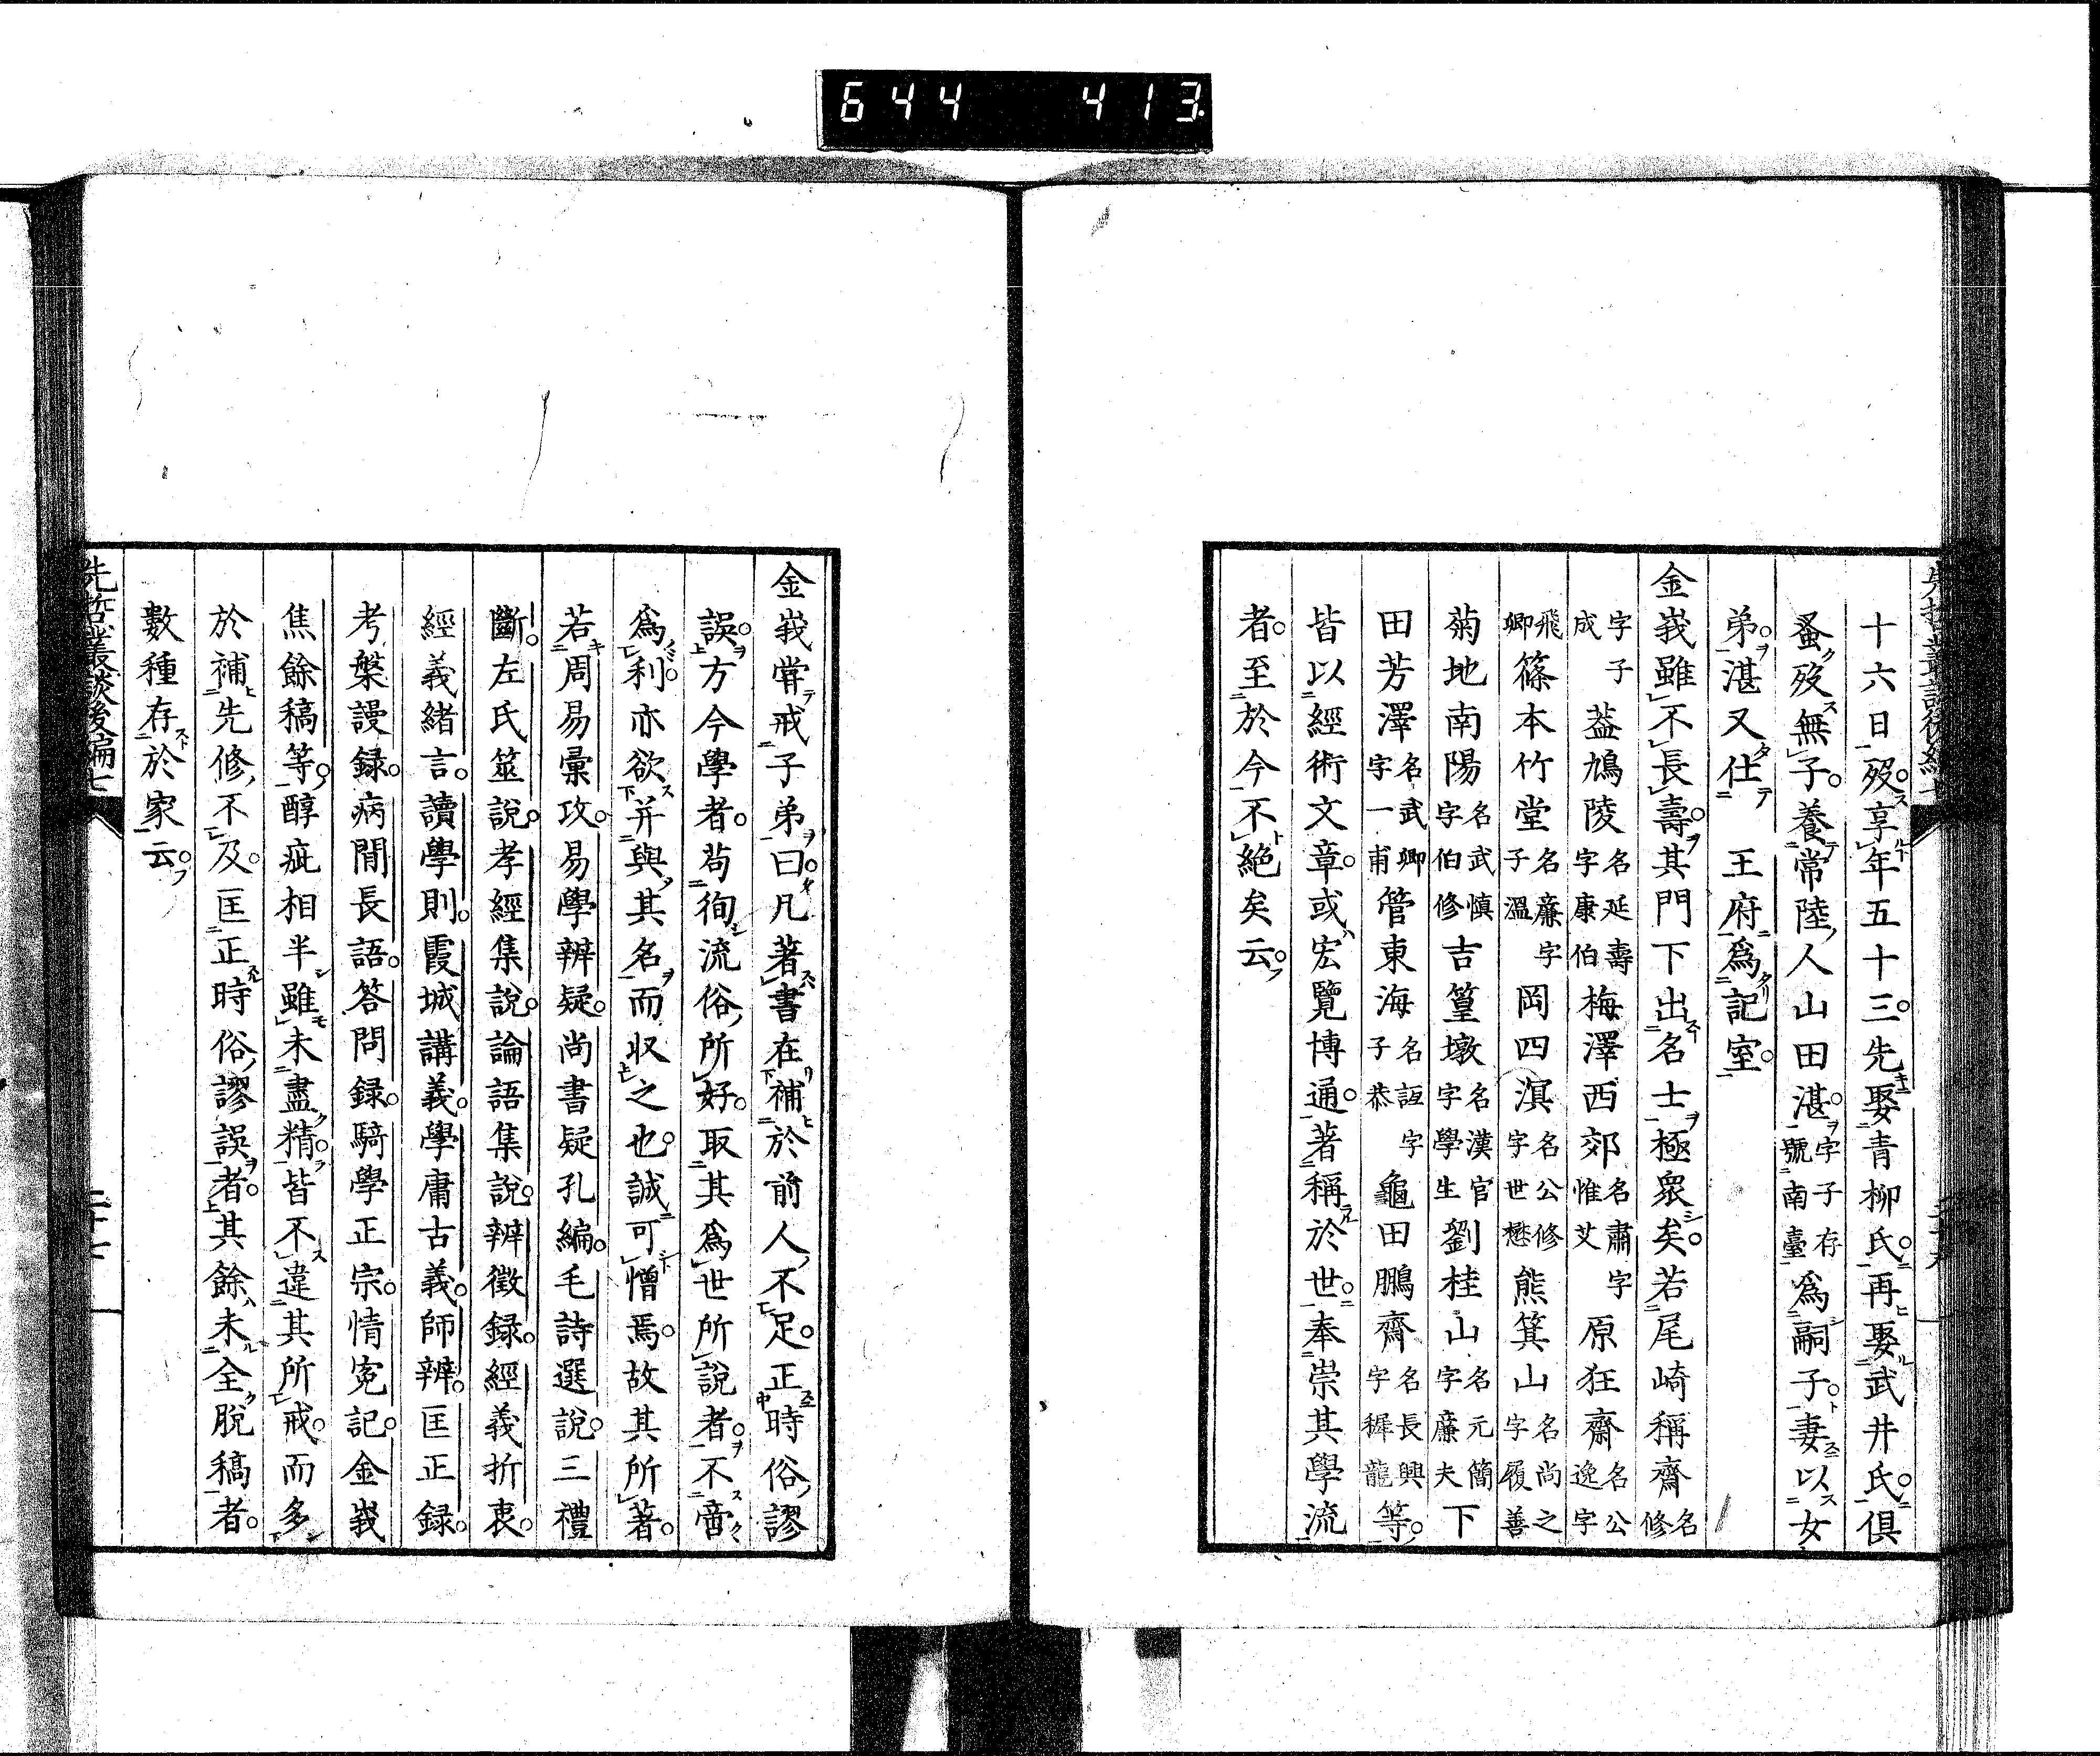 644 413
十六日歿。享年五十三。先娶青柳氏。再娶武井氏。俱
蚤歿無子。養常陸人山田湛。字子存號南臺爲嗣子。妻以女
弟。湛又仕 王府爲記室。
金峩雖不長壽。其門下出名士極衆矣。若尾崎稱齋名修
字子成葢鳩陵名延壽字康伯梅澤西郊名肅字惟艾原狂齋名逸字公
飛卿篠本竹堂名廉字子溫岡四溟名公修字世懋熊箕山名尚之字履善
菊地南陽名武愼字伯修吉篁墩名漢官字學生劉桂山名元簡字廉夫下
田芳澤名武卿字一甫管東海名誑字子恭龜田鵬齋名長興字穉龍等。
皆以經術文章。或宏覽博通。著稱於世。奉崇其學流
者。至於今不絕矣云。
金峩甞戒子弟曰。凡著書在補於前人不足。正時俗謬
誤。方今學者。苟徇流俗所好。取其爲世所說者。不啻
爲利。亦欲幷與其名而収之也。誠可憎焉。故其所著。
若周易彙攷。易學辨疑。尚書疑孔編。毛詩選說。三禮
斷。左氏筮說。孝經集說。論語集說。辨徵録。經義折衷。
經義緒言。讀學則。霞城講義。學庸古義。師辨。匡正録。
考槃謾録。病間長語。答問録。騎學正宗。情寃記。金峩
焦餘稿等。醇疵相半。雖未盡精。皆不違其所戒。而多
於補先修不及。匡正時俗謬誤者。其餘未全脫稿者。
數種存於家云。
先哲叢談後編七
二十七